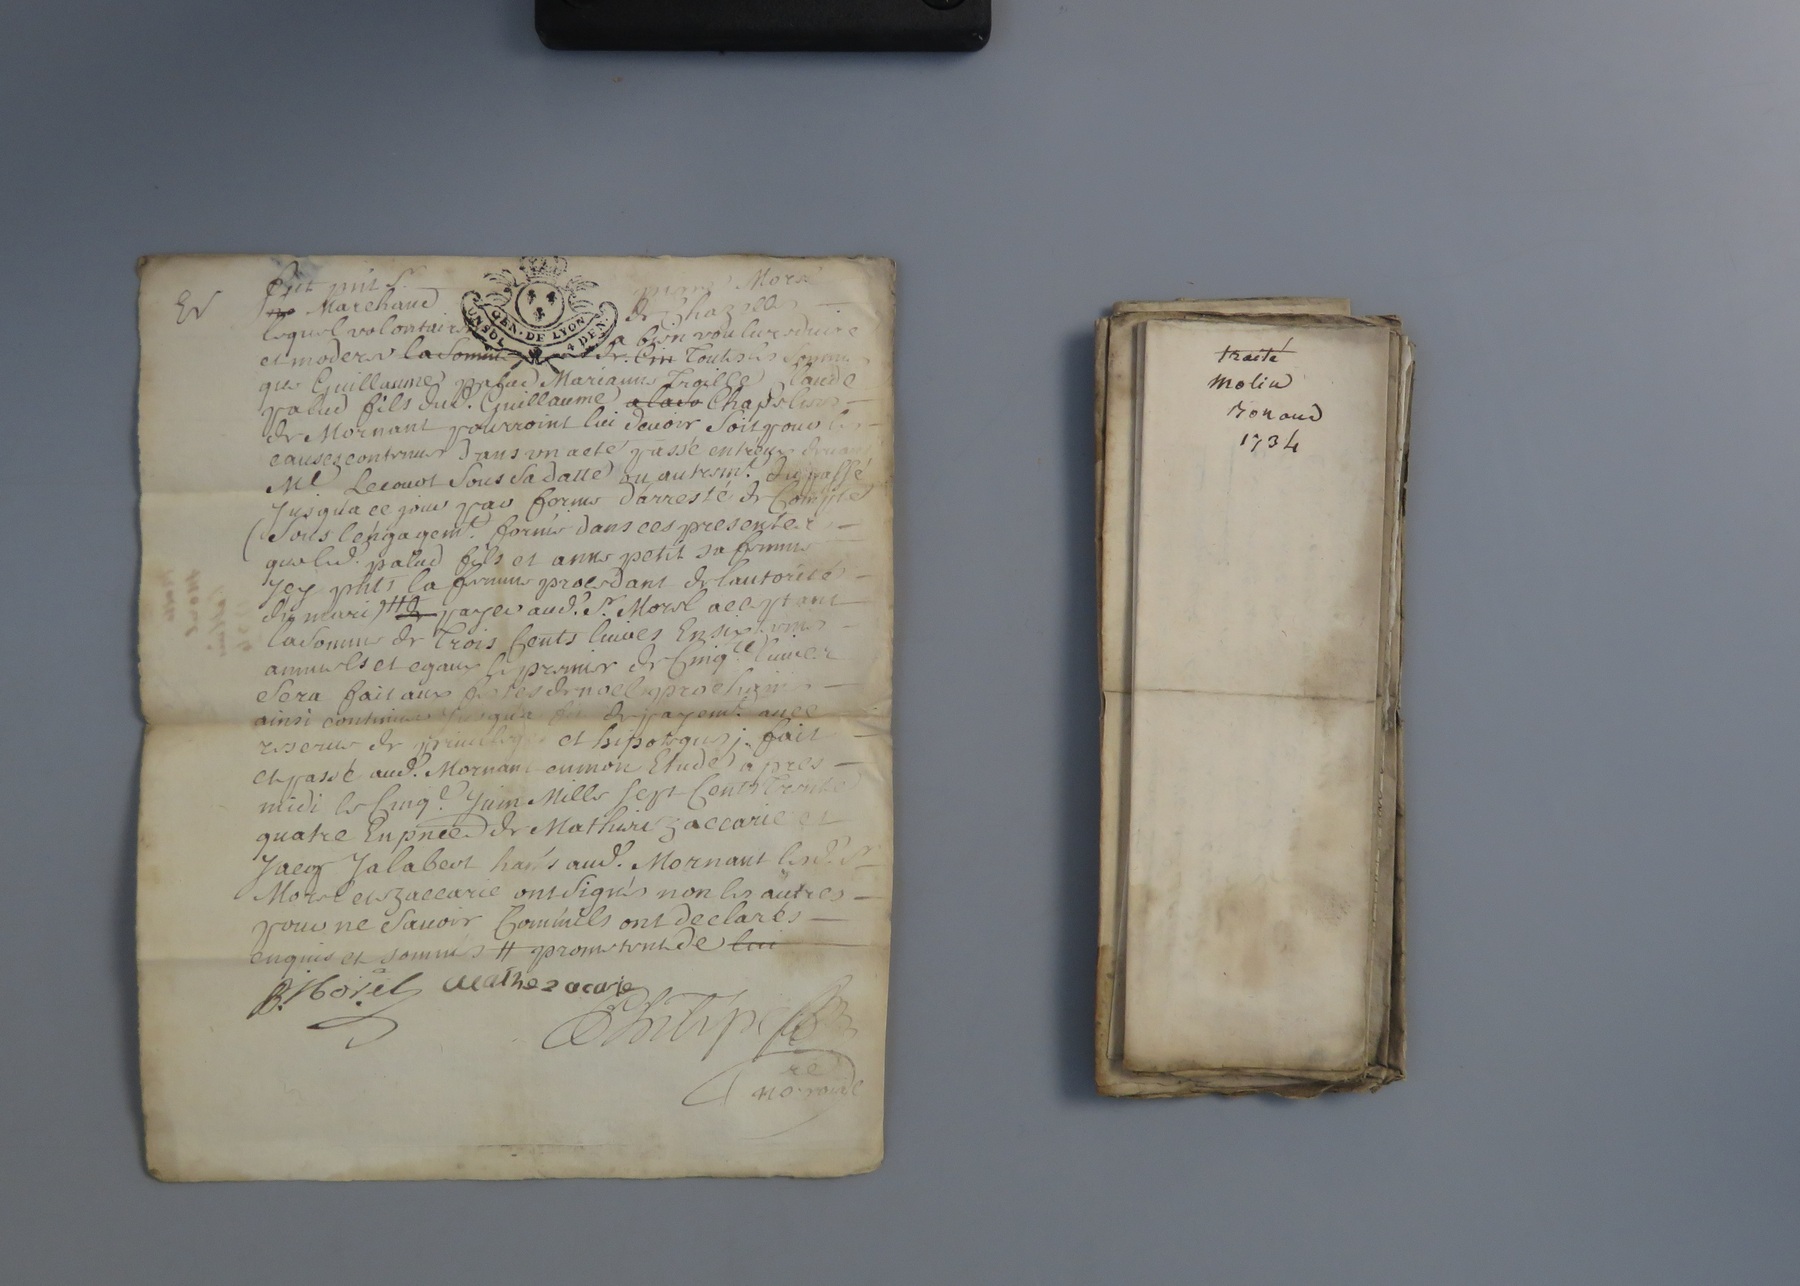 Fut pnt Sr. Morel
Marchand de Chazelle
lequel volontairement a bien voulu reduire
et moderer la somme toutes les sommes
que Guillaume palud Marianne Claude
palud fils dud. Guillaume a la so Chapeliers
de Mornant pourroint lui devoir soit pour les
causes contenues dans un acte passé entreux devant
Me Lecourt sous sa datte ou autremt. du passé
jusqu'a ce jour par forme d'arresté de Compte
(sous l'engagemt. formé dans ces presentes
que led. palud fils et anne petit sa femme
icy pnts la femme procedant de l'autorité
du mari) # payer aud. Sr. Morel acceptant
la somme de trois Cents livres En six termes
annuels et egaux le premier de Cinqte livres
sera fait aux festes de noel prochaines
ainsi continuer jusqu'a fin de payemt. avec
reserve de privilege et hipoteque; fait
et passé aud. Mornant en mon Etude apres
midi le Cinqe. Juin Mille Sept Cents trente
quatre En pnce de Mathieu Zaccarie et
Jacq Jalabert hants aud. Mornant lesd. Sr
Morel et Zaccarie ont signés non les autres
pour ne savoir Comm'ils ont declarés
enquis et sommés # prometent de lui
B. Morel Mathe zacarie
Philipe
re
no. royal
GEN. DE LYON
UN SOL 4 DEN.
traité
Molin
Bonand
1734